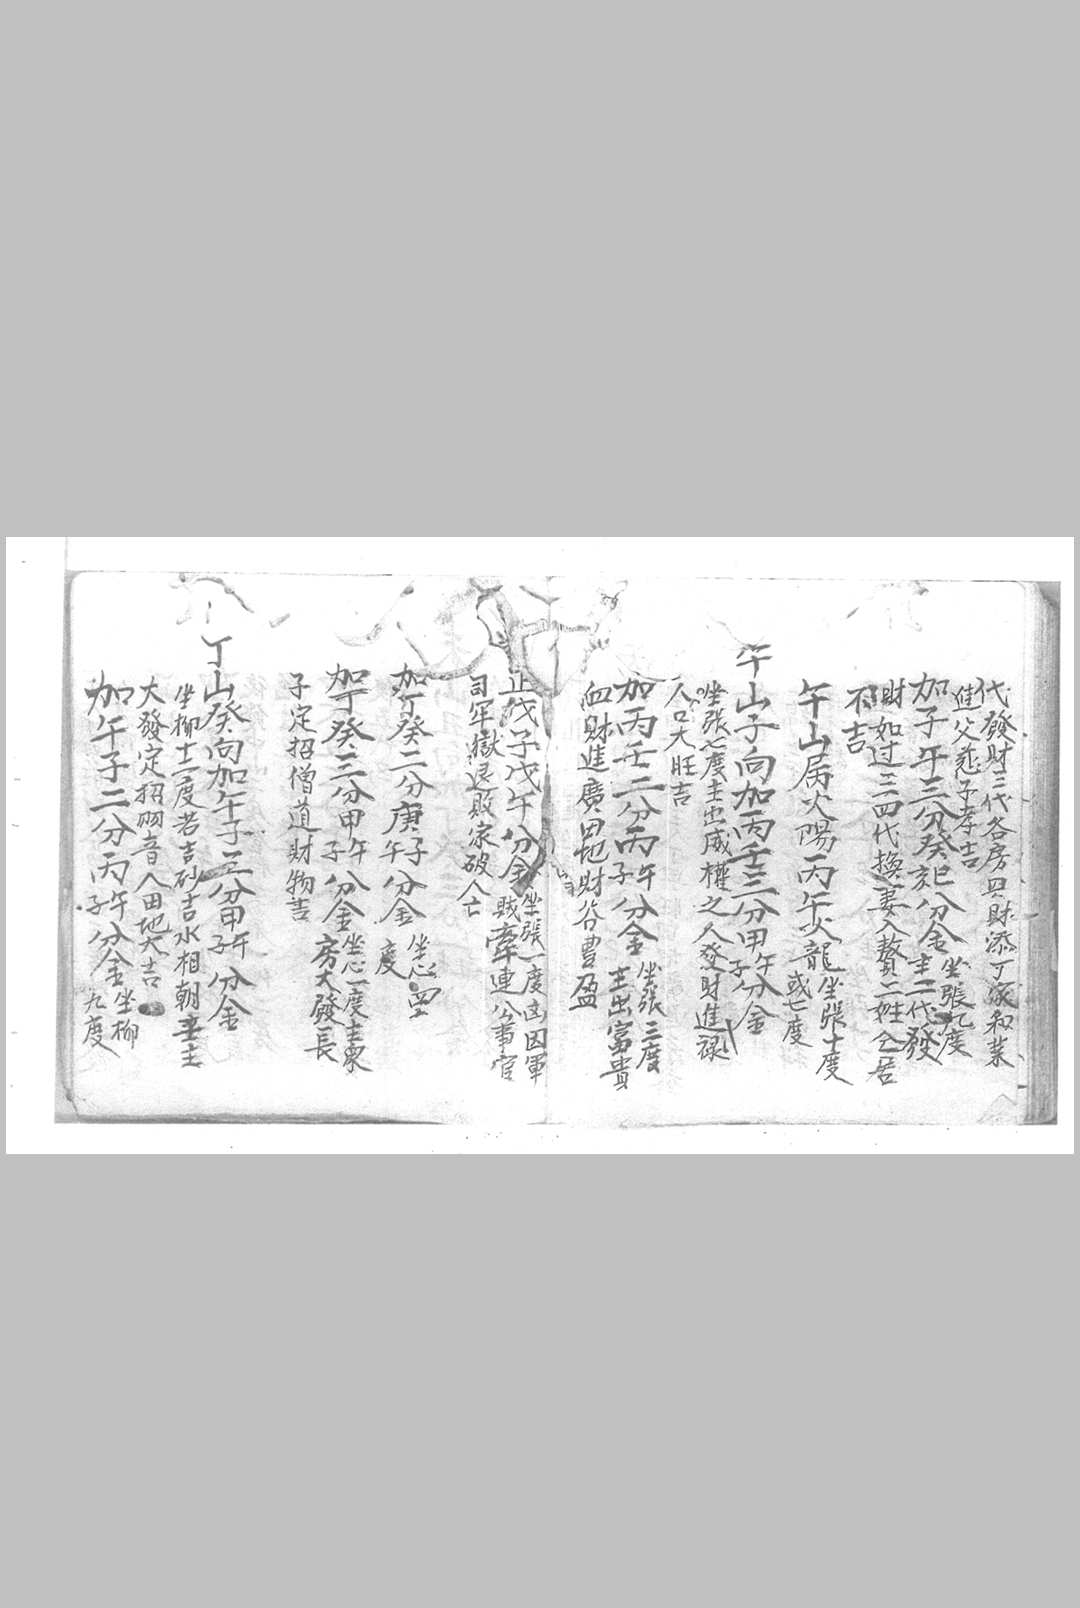 代發財三代各房興財添丁家和業
進父慈子孝吉
加子午三分癸巳分金坐張九度主二代發
財如过三四代換妻入贅二姓仝居
不吉
午山属火陽丙午火龍坐張十度或七度
午山子向加丙壬三分甲午甲子分金
坐張七度主出威權之人發財進祿
人口大旺吉
加丙壬二分丙午丙子分金坐張三度主出富貴
血財進廣田地財谷豐盈
正戊子戊午分金坐張一度凶因軍賊牽連公事官
司牢獄退敗家破人亡
加丁癸二分庚子庚午分金坐心四度
加丁癸三分甲午甲子分金坐心一度主東房大發長
子定招僧道財物吉
丁山癸向加午子三分甲午甲子分金
坐柳十二度若吉砂吉水相朝主
大發定招羽音人田地大吉
加午子二分丙午丙子分金坐柳九度